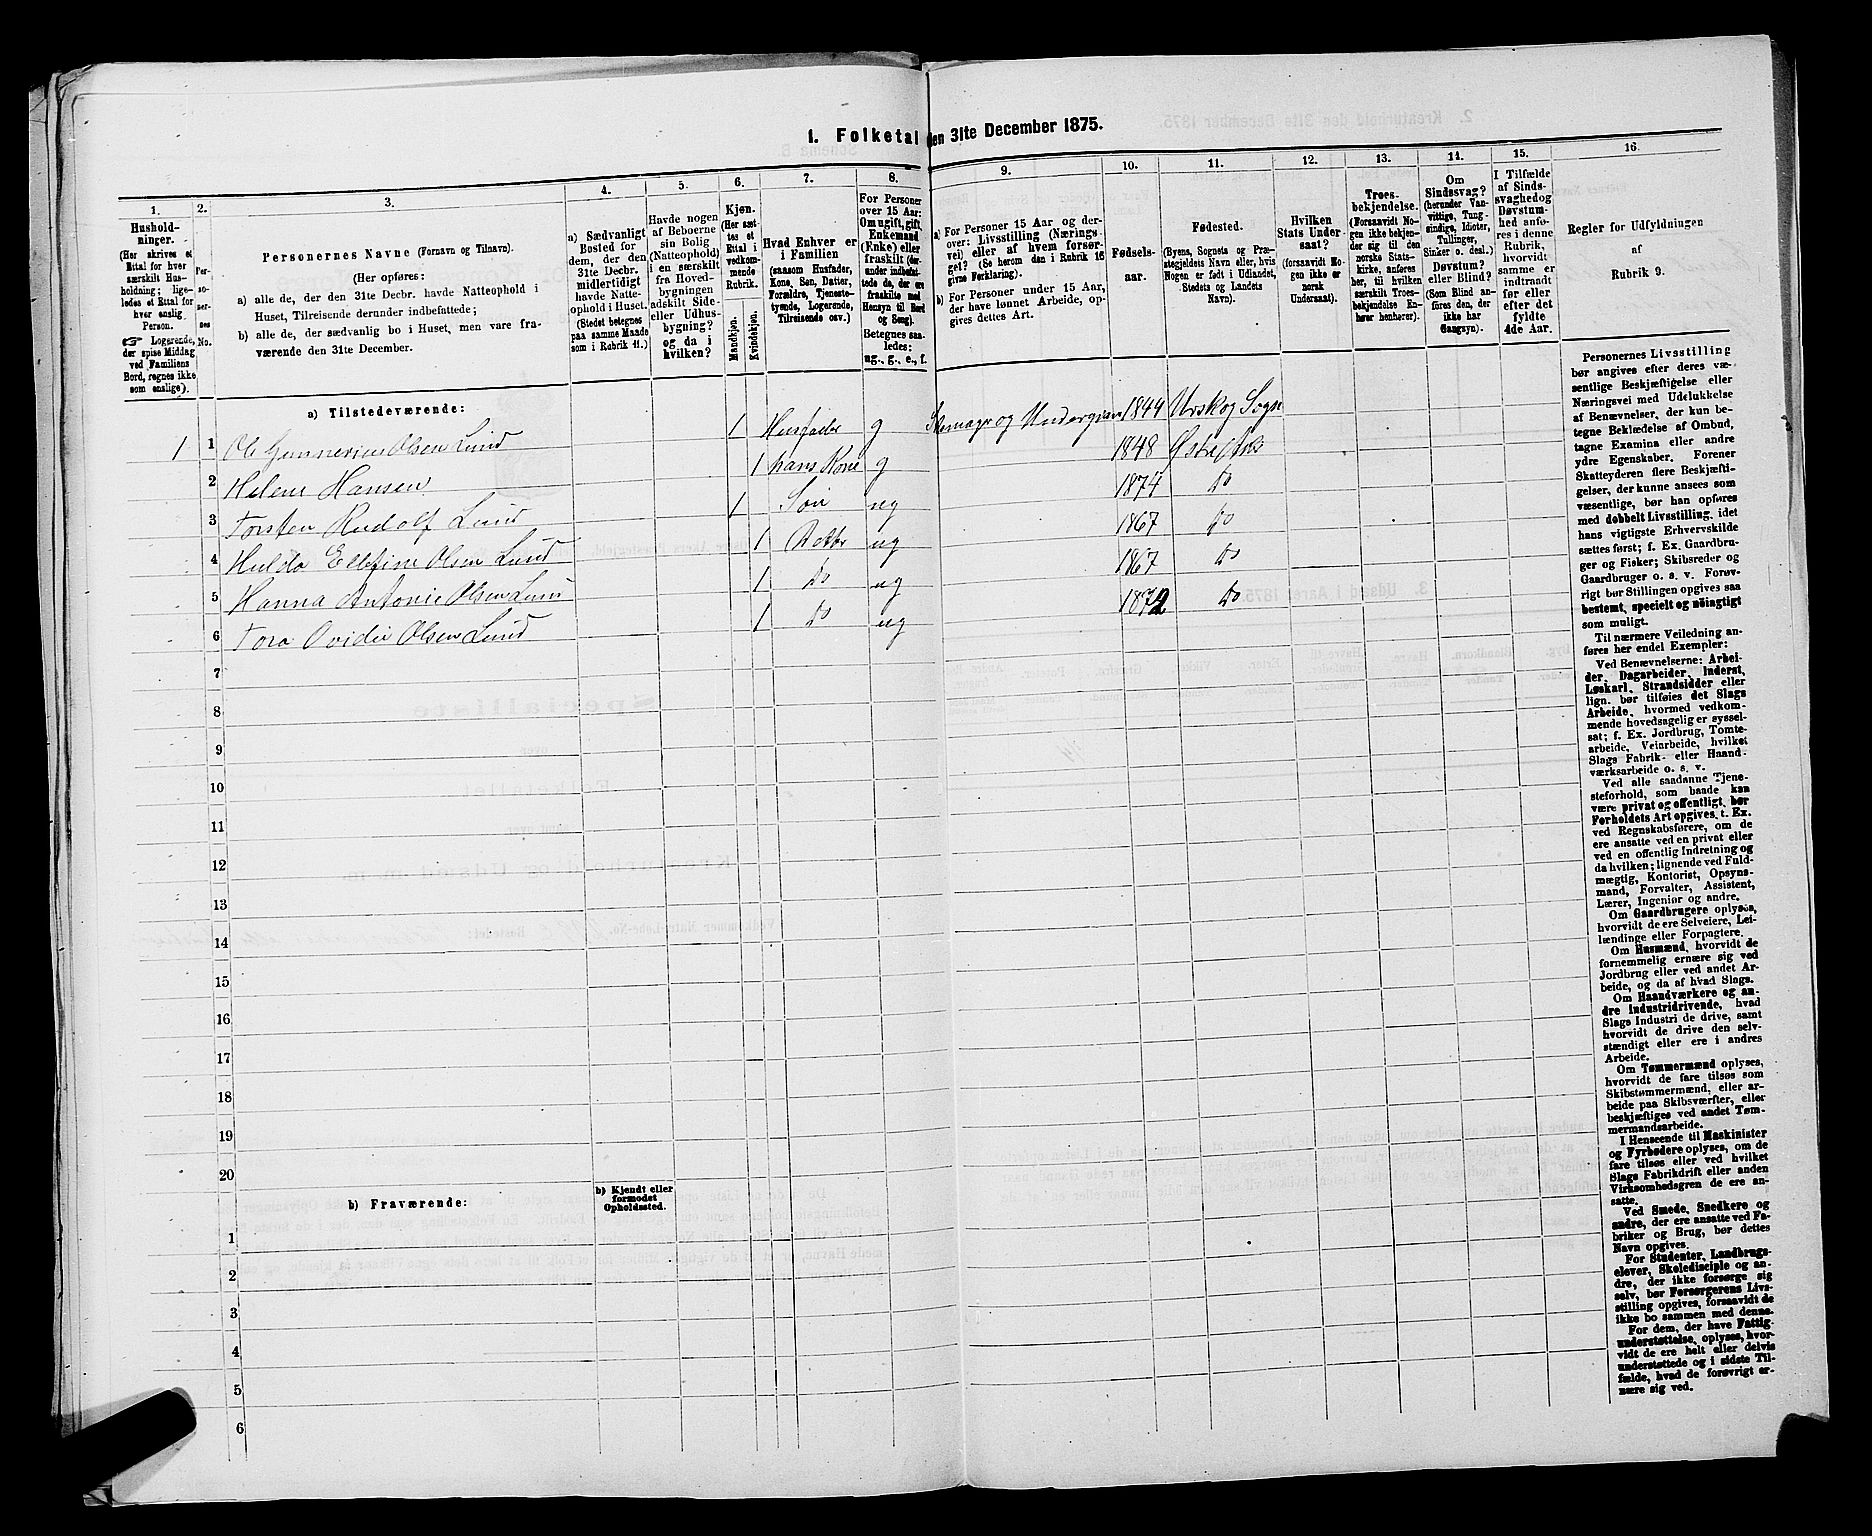 1. Folketal den 31te December 1875.
1.
Hushold-
ninger.
(Her skrives et
Ettal for hver
særskilt Hus-
holdning; lige-
ledes et Ettal for
hver enslig
Person.
☞ Logerende,
der spise Middag
ved Familiens
Bord, regnes ikke
som enslige).
2.
Per-
so-
ner-
nes
No.
3.
Personernes Navne (Fornavn og Tilnavn).
(Her opføres:
a) alle de, der den 31te Decbr. havde Natteophold i
Huset, Tilreisende derunder indbefattede;
b) alle de, der sædvanlig bo i Huset, men vare fra-
værende den 31te December.
4.
a) Sædvanligt
Bosted for
dem, der den
31te Decbr.
midlertidigt
havde Natte-
ophold i Huset.
(Stedet betegnes
paa samme Maade
som i Rubrik 11.)
5.
Havde nogen
af Beboerne
sin Bolig
(Natteophold)
i en særskilt
fra Hoved-
bygningen
adskilt Side-
eller Udhus-
bygning?
og da i
hvilken?
6.
Kjøn.
(Her sæt-
tes et
Ettal i
vedkom-
mende
Rubrik.
Mandkjøn.
Kvindekjøn.
7.
Hvad Enhver er
i Familien
(saasom Husfader,
Kone, Søn, Datter,
Forældre, Tjeneste-
tyende, Logerende,
Tilreisende osv.)
8.
For Personer
over 15 Aar:
Om ugift, gift,
Enkemand
(Enke) eller
fraskilt (der-
under indbefat-
tede de, der ere
fraskilte med
Hensyn til Bord
og Seng).
Betegnes saa-
ledes:
ug., g., e., f.
9.
a) For Personer 15 Aar og der-
over: Livsstilling (Nærings-
vei) eller af hvem forsør-
get? (Se herom den i Rubrik 16
givne Forklaring).
b) For Personer under 15 Aar,
der have lønnet Arbeide, op-
gives dettes Art.
10.
Fødsels-
aar.
11.
Fødested.
(Byens, Sognets og Præ-
stegjeldets Navn eller, hvis
Nogen er født i Udlandet,
Stedets og Landets
Navn).
12.
Hvilken
Stats Under-
saat?
(forsaavidt No-
gen ikke er
norsk
Undersaat).
13.
Troes-
bekjendelse.
(Forsaavidt No-
gen ikke bekjen-
der sig til den
norske Stats-
kirke, anføres
her, til hvilken
særskilt Troes-
bekjendelse En-
hver henhører).
14.
Om
Sindssvag?
(herunder Van-
vittige, Tung-
sindige, Idioter,
Tullinger,
Sinker o. desl.).
Døvstum?
eller Blind?
(Som Blind an-
føres den, der
ikke har
Gangsyn).
15.
I Tilfælde
af Sinds-
svaghed og
Døvstum-
hed anfø-
res i denne
Rubrik,
hvorvidt
samme er
indtraadt
før eller
efter det
fyldte
4de Aar.
16.
Regler for Udfyldningen
af
Rubrik 9.
a) Tilstedeværende:
1 1 Ole Olsen Lund 1 Husfader g Skomager og 1844 Urskog Sogn
2 Helene Hansen 1 hans Kone g 1848 Østre Aker
3 Torsten Rudolf Lund 1 Søn ug 1874 do
4 Hulda Ellefine Olsen Lund 1 Datter ug 1867 do
5 Hanna Antonie Olsen Lund 1 do ug 1867 do
6 Tora Ovidie Olsen Lund 1 do ug 1872 do
7
8
9
10
11
12
13
14
15
16
17
18
19
20
b) Fraværende:
b) Kjendt eller
formodet
Opholdssted.
1
2
3
4
5
6
Personernes Livsstilling
bør angives efter deres væ-
sentlige Beskjæftigelse eller
Næringsvei med Udelukkelse
af Benævnelser, der kun be-
tegne Beklædelse af Ombud,
tagne Examina eller andre
ydre Egenskaber. Forener
Skatteyderen flere Beskjæfti-
gelser, der kunne ansees som
væsentlige, bør han opføres
med dobbelt Livsstilling, idet
hans vigtigste Erhvervskilde
sættes først; f. Ex. Gaardbru-
ger og Fisker; Skibsreder og
Gaardbruger o. s. v. Forøv-
rigt bør Stillingen opgives saa
bestemt, specielt og nøiagtigt
som muligt.
Til nærmere Veiledning an-
føres her endel Exempler:
Ved Benævnelserne: Arbei-
der, Dagarbeider, Inderst,
Løskarl, Strandsidder eller
lign. bør tilføies det Slags
Arbeide, hvormed vedkom-
mende hovedsagelig er syssel-
sat; f. Ex. Jordbrug, Tomte-
arbeide, Veiarbeide, hvilket
Slags Fabrik- eller Haand-
værksarbeide o. s. v.
Ved alle saadanne Tjene-
steforhold, som baade kan
være privat og offentligt, bør
Forholdets Art opgives, t. Ex.
ved Regnskabsførere, om de
ere ansatte ved en privat eller
ved en offentlig Indretning og
da hvilken; lignende ved Fuld-
mægtig, Kontorist, Opsyns-
mand, Forvalter, Assistent,
Lærer, Ingeniør og andre.
Om Gaardbrugere oplyses,
hvorvidt de ere Selveiere, Lei-
lændinge eller Forpagtere.
Om Husmænd, hvorvidt de
fornemmelig ernære sig ved
Jordbrug eller ved andet Ar-
beide, og da af hvad Slags.
Om Haandværkere og an-
dre Industridrivende, hvad
Slags Industri de drive, samt
hvorvidt de drive den selv-
stændigt eller ere i andres
Arbeide.
Om Tømmermænd oplyses,
hvorvidt de fare tilsøs som
Skibstømmermænd, eller ar-
beide paa Skibsværfter, eller
beskjæftiges ved andet Tøm-
mermandsarbeide.
I Henseende til Maskinister
og Fyrbødere oplyses, om de
fare tilsøs eller ved hvilket
Slags Fabrikdrift eller anden
Virksomhedsgren de ere an-
satte.
Ved Smede, Snedkere og
andre, der ere ansatte ved Fa-
briker og Brug, bør dettes
Navn opgives.
For Studenter, Landbrugs-
elever, Skoledisciple og an-
dre, der ikke forsørge sig
selv, bør Forsørgerens Livs-
stilling opgives, forsaavidt de
ikke bo sammen med denne.
For dem, der have Fattig-
understøttelse, oplyses, hvor-
vidt de ere helt eller delvis
understøttede og i sidste Til-
fælde, hvad de forøvrigt er-
nære sig ved.